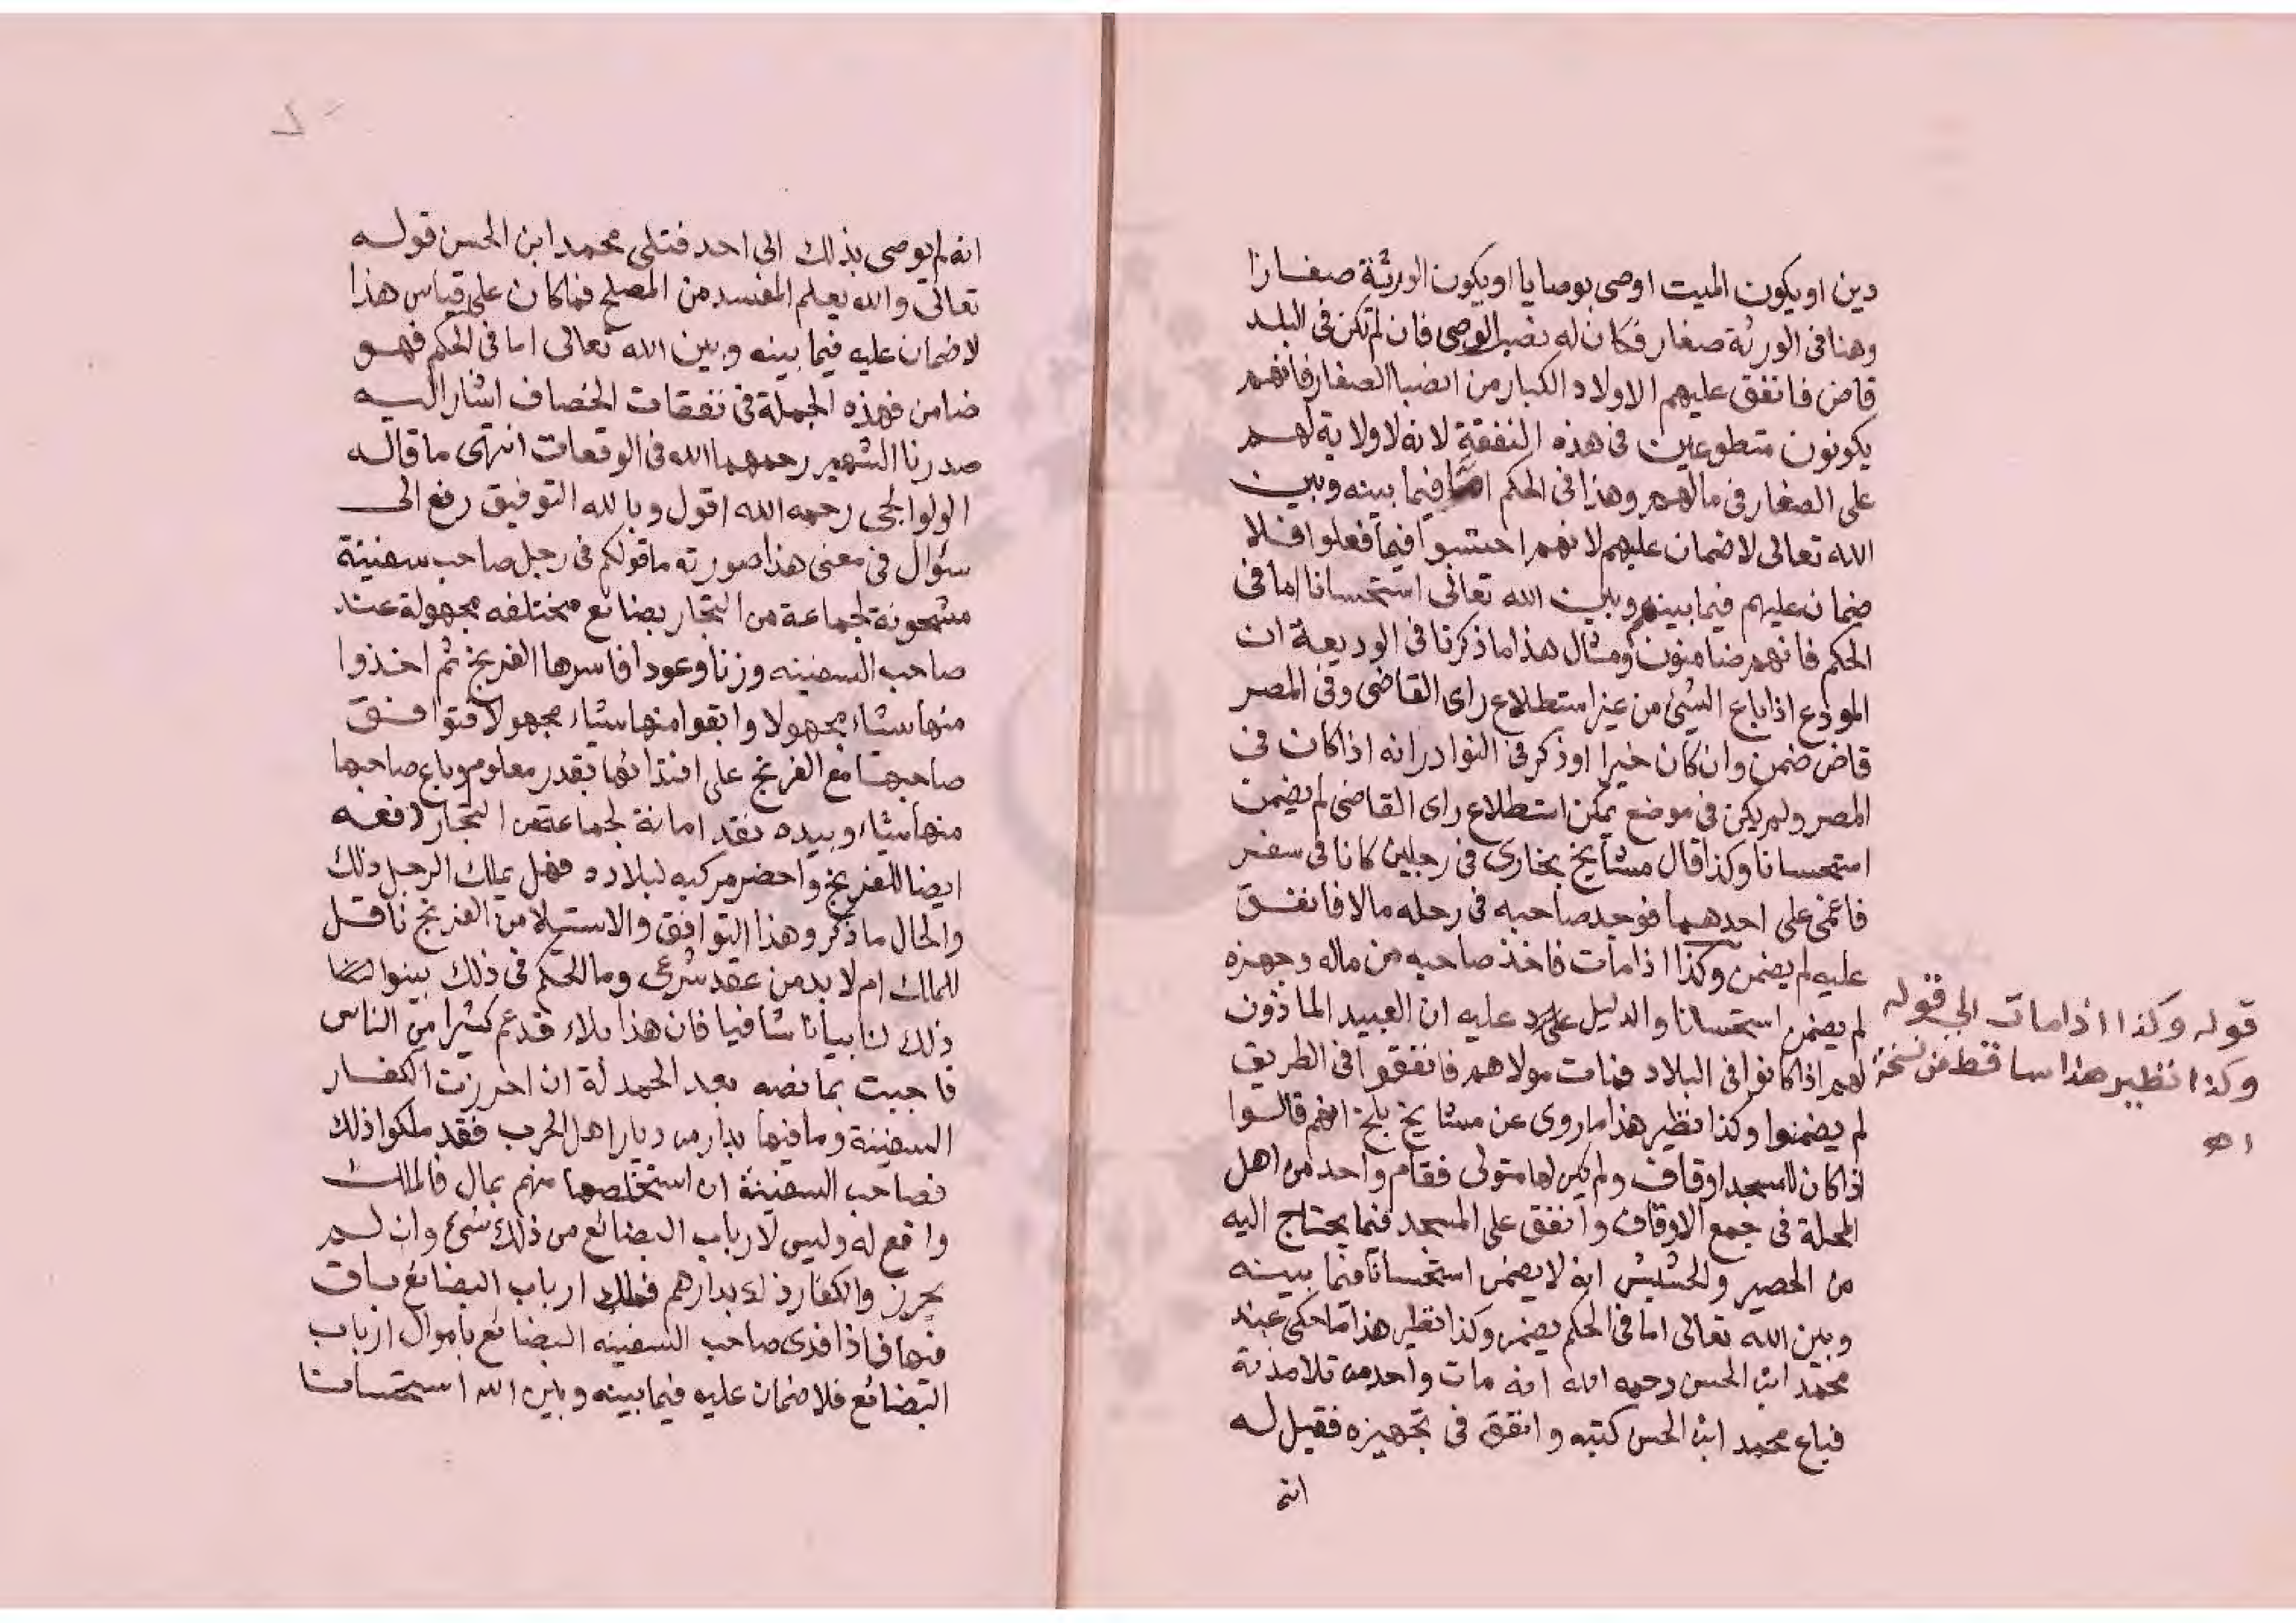 دين او يكون الميت اوصى بوصايا او يكون الورثة صغارا
وهنا فى الورثة صغار فكان له نصب الوصى فان لم تكن فى البلد
قاض فانفق عليهم الاولاد الكبار من انصبا الصغار فانهم
يكونون متطوعين فى هذه النفقة لانه لا ولاية لهم
على الصغار فى مالهم وهذا فى الحكم اما فيما بينه وبين
الله تعالى لا ضمان عليهم لانهم احتسبوا فيما فعلوا فلا
ضمان عليهم فيما بينهم وبين الله تعالى استحسانا اما فى
الحكم فانهم ضامنون ومثال هذا ما ذكرنا فى الوديعة ان
المودع اذا باع الشئ من غير استطلاع راى القاضى وفى المصر
قاض ضمن وان كان خيرا وذكر فى النوادر انه اذا كان فى
المصر ولم يكن فى موضع يمكن استطلاع راى القاضى لم يضمن
استحسانا وكذا قال مشايخ بخارى فى رجلين كانا فى سفر
فاغمى على احدهما فوجد صاحبه فى رحله مالا فانفق
عليه لم يضمن وكذا اذا مات فاخذ صاحبه من ماله وجهزه
لم يضمن استحسانا والدليل عليه ان العبيد الماذون
لهم اذا كانوا فى البلاد فمات مولاهم فانفقوا فى الطريق
لم يضمنوا وكذا نظير هذا ما روى عن مشايخ بلخ انهم قالوا
اذا كان للمسجد اوقاف ولم يكن لها متولى فقام واحد من اهل
المحلة فى جمع الاوقاف وانفق على المسجد فيما يحتاج اليه
من الحصير والحشيش انه لا يضمن استحسانا فيما بينه
وبين الله تعالى اما فى الحكم يضمن وكذا نظير هذا ما حكى عند
محمد ابن الحسن رحمه الله انه مات واحد من تلامذته
فباع محمد ابن الحسن كتبه وانفق فى تجهيزه فقيل له
انه
قوله وكذا اذا مات الى قوله
وكذا نظير هذا ساقط من نسخة
اهـ
انه لم يوصى بذلك الى احد فتلى محمد ابن الحسن قوله
تعالى والله يعلم المفسد من المصلح فما كان على قياس هذا
لا ضمان عليه فيما بينه وبين الله تعالى اما فى الحكم فهو
ضامن فهذه الجملة فى نفقات الخصاف اشار اليه
صدرنا الشهير رحمهما الله فى الوقعات انتهى ما قاله
الولوالجى رحمه الله اقول وبالله التوفيق رفع الى
سؤال فى معنى هذا صورته ما قولكم فى رجل صاحب سفينة
مشحونة لجماعة من التجار بضائع مختلفه مجهولة عند
صاحب السفينه وزنا وعودا فاسرها الفرنج ثم اخذوا
منها شياء مجهولا وابقوا منها شياء مجهولا فتوافق
صاحبها مع الفرنج على افتدائها بقدر معلوم وباع صاحبها
منها شياء وبيده نقد امانة لجماعة من التجار دفعه
ايضا للفرنج واحضر مركبه لبلاده فهل يملك الرجل ذلك
والحال ما ذكر وهذا التوافق والاستيلاء من الفرنج ناقل
للملك ام لا بد من عقد شرعى وما الحكم فى ذلك بينوا لنا
ذلك لنا بيانا شافيا فان هذا بلاء قد عم كثيرا من الناس
فاجبت بما نصه بعد الحمد لة ان احرزت الكفار
السفينة وما فيها بدار من ديار اهل الحرب فقد ملكوا ذلك
فصاحب السفينة ان استخلصها منهم بمال فالملك
واقع له وليس لارباب البضائع من ذلك شئ وان لم
يحرز والكفار ذلك بدارهم فملك ارباب البضائع باق
فيها فاذا فدى صاحب السفينه البضائع باموال ارباب
البضائع فلا ضمان عليه فيما بينه وبين الله استحسانا